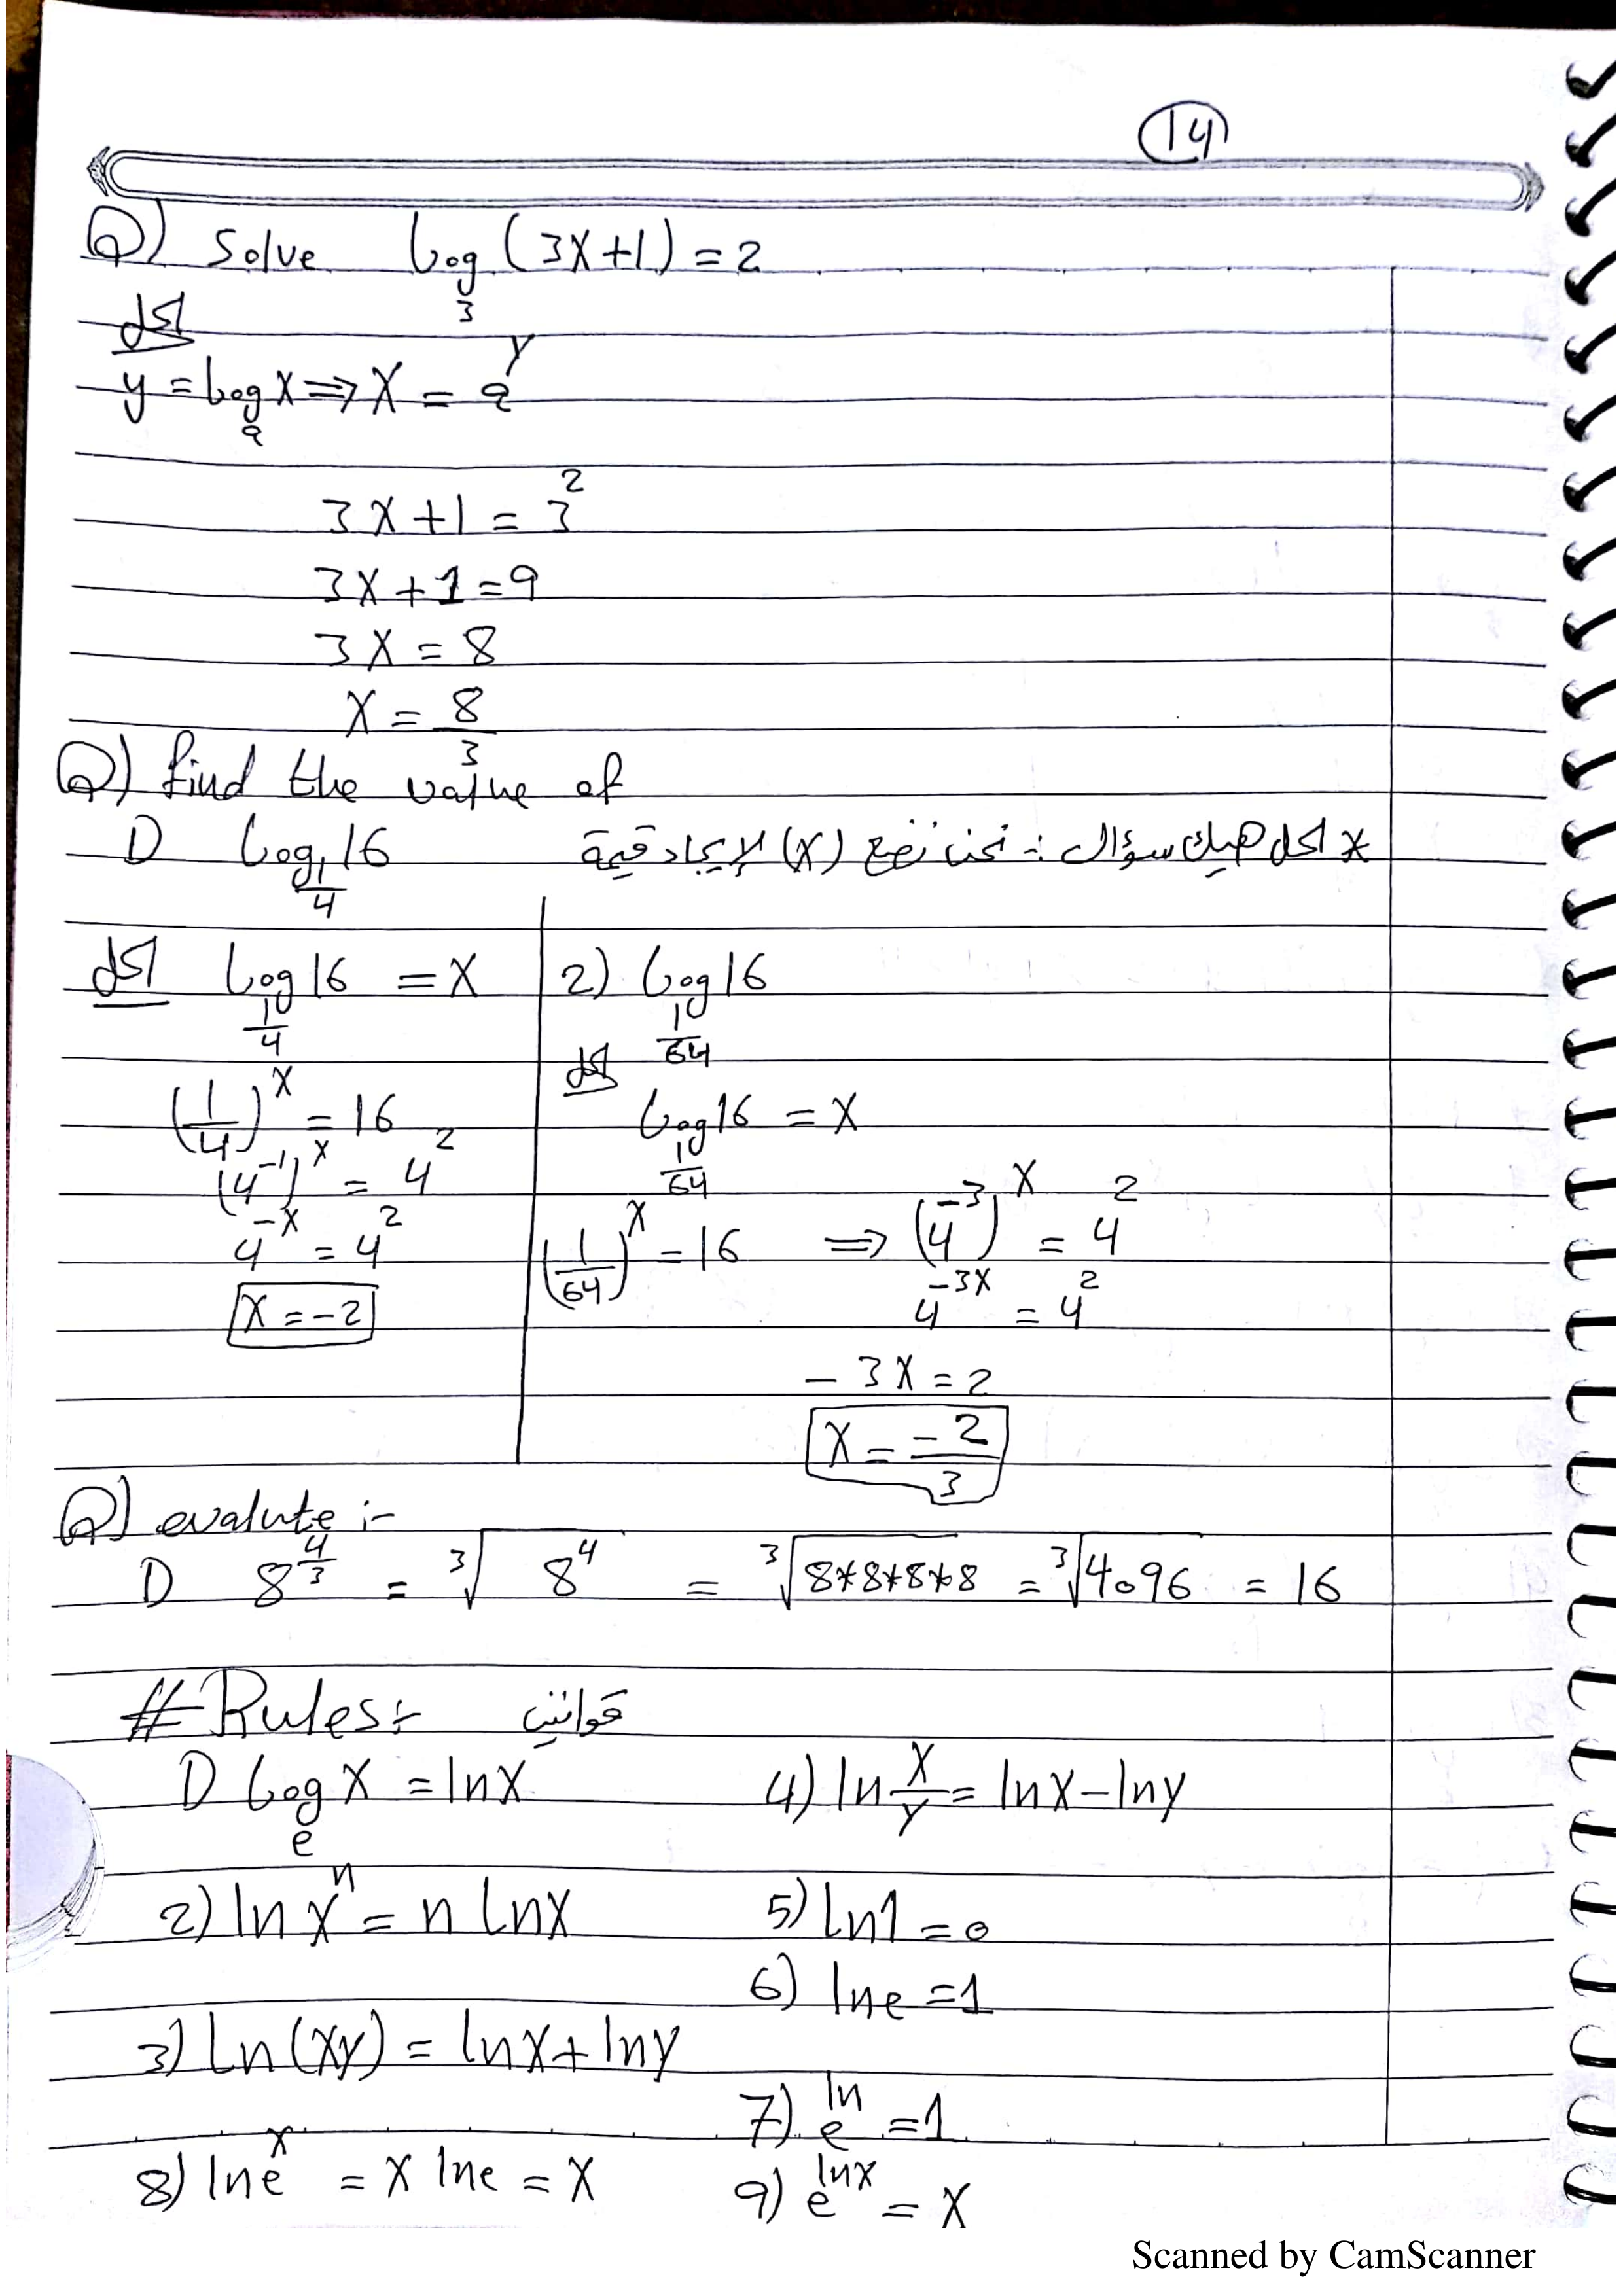 14
Q) Solve log₃(3X+1) = 2
الحل
y = logₐX ⇒ X = a^y
3X+1 = 3²
3X+1 = 9
3X = 8
X = 8/3
Q) find the value of
1) log_{1/4} 16
* لحل هيك سؤال :- نحن نضع (X) لإيجاد قيمة
الحل log_{1/4} 16 = X
(1/4)^X = 16
(4^-1)^X = 4²
4^-X = 4²
X = -2
2) log_{1/64} 16
الحل
log_{1/64} 16 = X
(1/64)^X = 16 ⇒ (4^-3)^X = 4²
4^-3X = 4²
-3X = 2
X = -2/3
Q) evalute :-
1) 8^{4/3} = ³√8⁴ = ³√8*8*8*8 = ³√4096 = 16
# Rules:- قوانين
1) logₑX = lnX
4) ln X/Y = lnX - lny
2) ln X^n = n lnX
5) ln1 = 0
6) lne = 1
3) ln(Xy) = lnX + lny
7) e^ln = 1
8) lne^x = X lne = X
9) e^lnx = X
Scanned by CamScanner